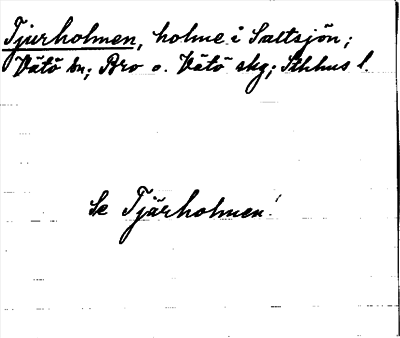 Tjurholmen, holme i Saltsjön;
Vätö sn; Bro o. Vätö skg; Sthlms l.
Se Tjärholmen!